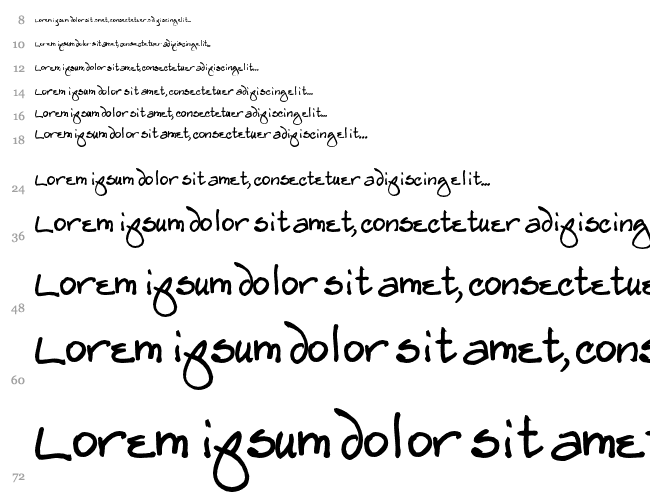 8 Lorem ipsum dolor sit amet, consectetuer adipiscing elit...
10 Lorem ipsum dolor sit amet, consectetuer adipiscing elit...
12 Lorem ipsum dolor sit amet, consectetuer adipiscing elit...
14 Lorem ipsum dolor sit amet, consectetuer adipiscing elit...
16 Lorem ipsum dolor sit amet, consectetuer adipiscing elit...
18 Lorem ipsum dolor sit amet, consectetuer adipiscing elit...
24 Lorem ipsum dolor sit amet, consectetuer adipiscing elit...
36 Lorem ipsum dolor sit amet, consectetuer adipiscing
48 Lorem ipsum dolor sit amet, consectetue
60 Lorem ipsum dolor sit amet, cons
72 Lorem ipsum dolor sit ame